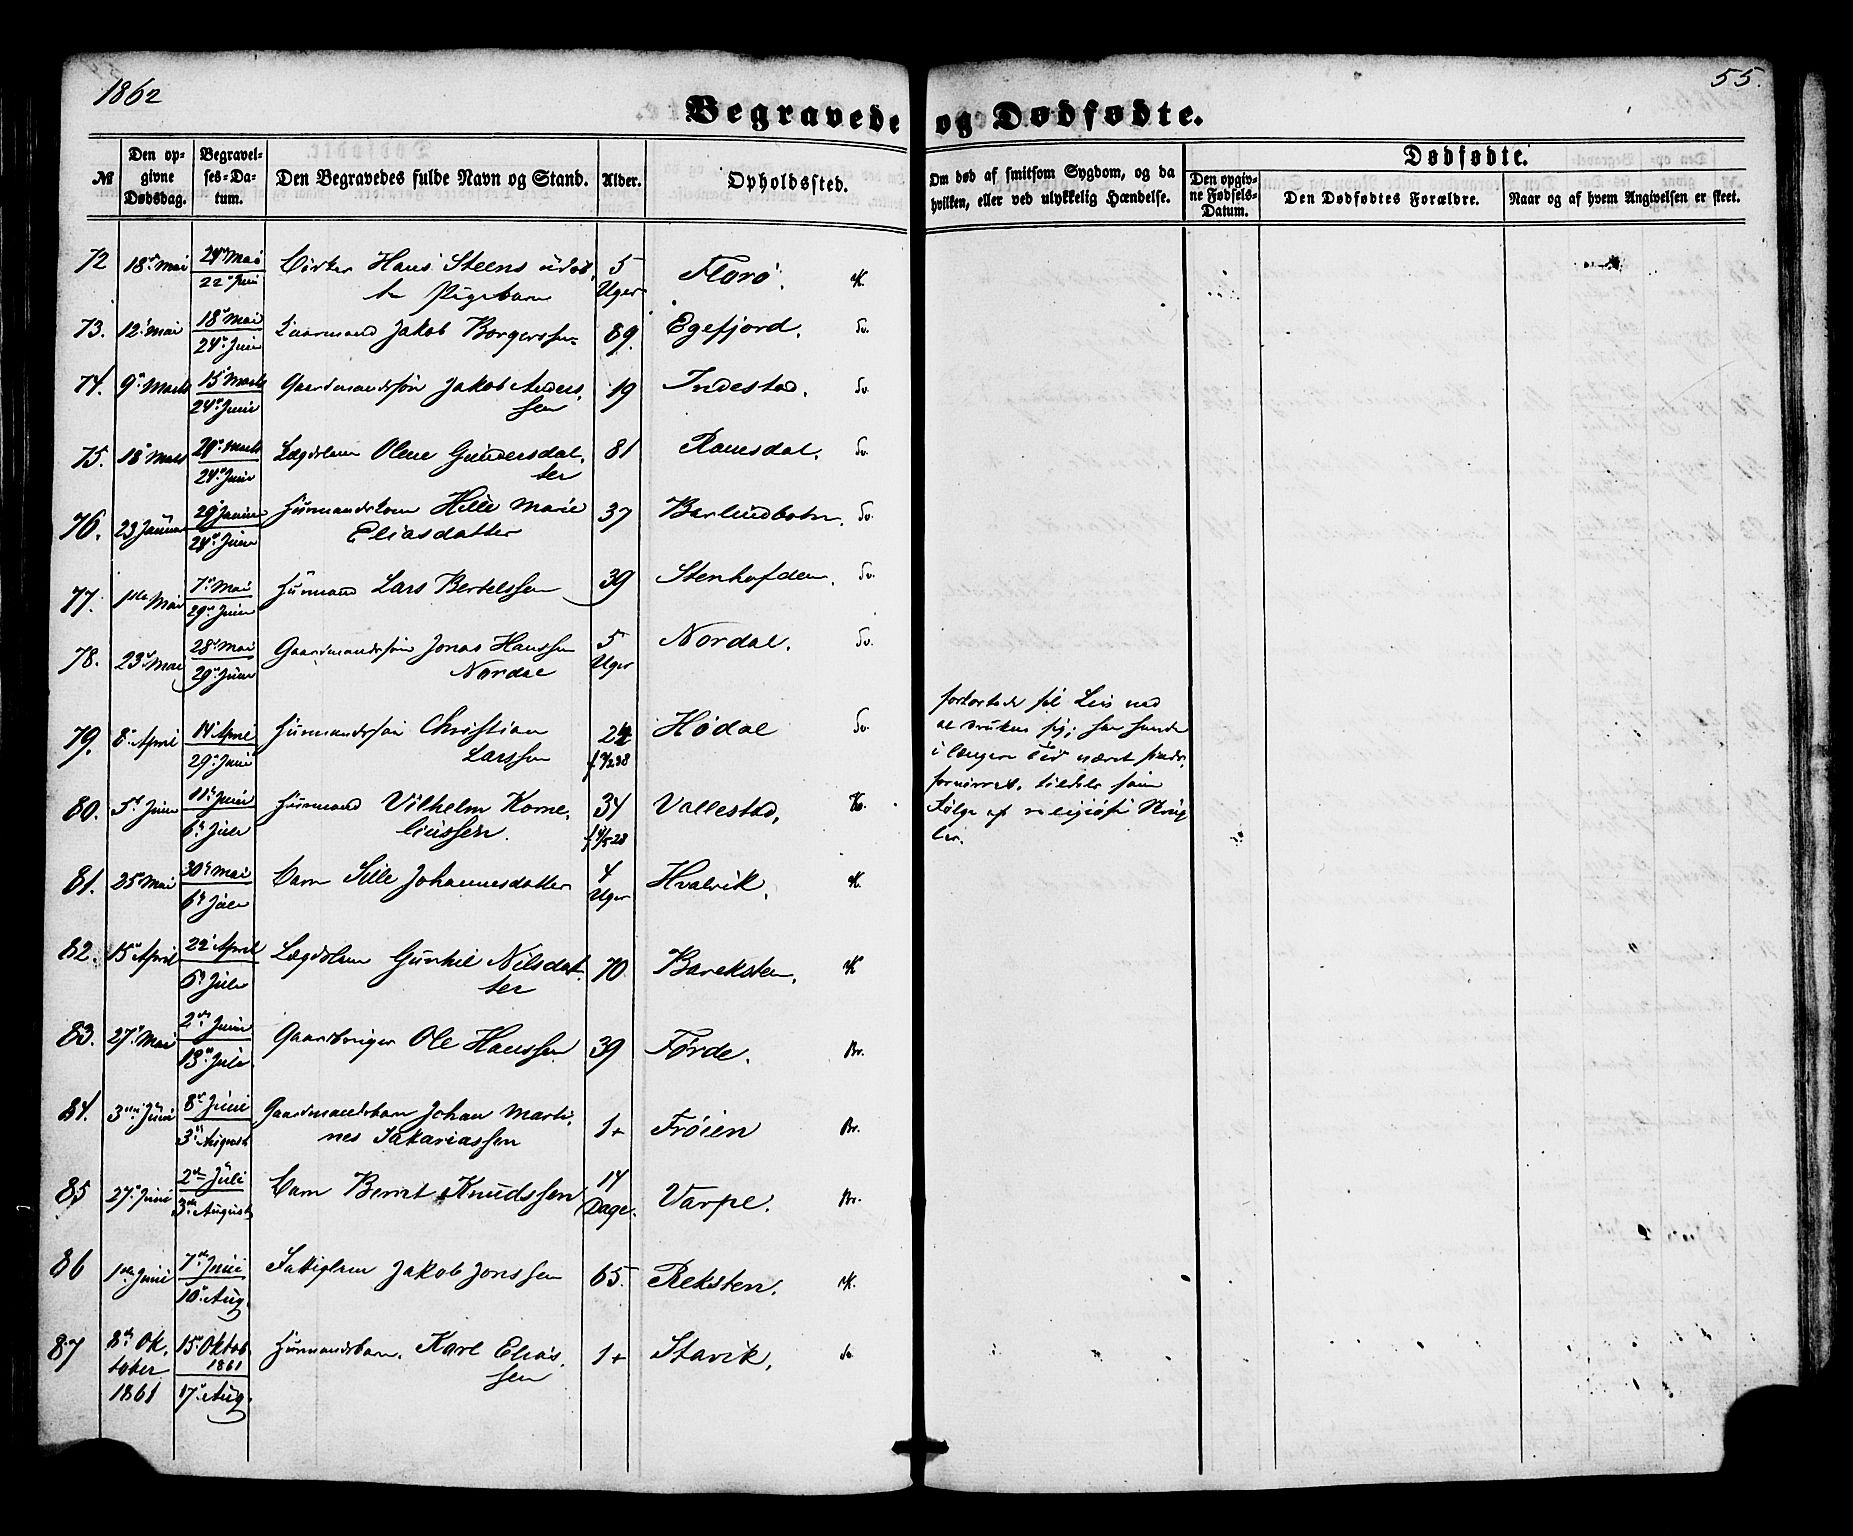 1862
55.
Begravede og Dødfødte.
№
Den opgivne Dødsdag.
Begravelses-Datum.
Den Begravedes fulde Navn og Stand.
Alder.
Opholdssted.
Om død af smitsom Sygdom, og da hvilken, eller ved ulykkelig Hændelse.
Dødfødte.
Den opgivne Fødsels-Datum.
Den Dødfødtes Forældre.
Naar og af hvem Angivelsen er skeet.
72 18 Mai 24 Mai 22 Juni Hans Steens Pigebarn 5 Uger Florø. K.
73. 12 Mai 18 Mai 24 Juni Jakob Borgerssen 89. Egefjord. Sv.
74. 9 Marts 15 Marts 24 Juni Gaardmandssøn Jakob Anderssen 19 Indestad. Sv.
75. 18 Marts 24 Juni Lægdslem Olene Gundersdatter 81 Ramsdal. Sv.
76. 23 Januar 24 Juni Marie Eliasdatter 37 Barlindbotn. Sv.
77. 1ste Mai 7 Mai 29 Juni Huusmand Lars Bertelssen 39 Stenhofden. Sv.
78. 23 Mai 28 Mai 29 Juni Gaardmandssøn Jonas Hanssen Nordal 5 Uger Nordal. Sv.
79. 8 April 14 April 29 Juni Huusmandssøn Christian Larssen 24 Hødal Sv.
i længere Tid været
Følge af religiøse
80. 5 Juni 11 Juni 6 Juli Huusmand Vilhelm Korneliussen. 34 Vallestad.
81. 25 Mai 30 Mai 6 Juli Barn Sille Johannesdatter 4 Uger Hvalvik. K.
82. 15 April 22 April 6 Juli Lægdslem Gunhil Nilsdatter 70 Bareksten. K
83. 27 Mai 2den Juni 13 Juli Gaardbruger Ole Hanssen 39 Førde. Br.
84. 3 Juni 8 Juni 3 August Gaardmandsbarn Johan Martines Sakariassen 1+ Frøien Br.
85 27 Juni 2 Juli 3 August Barn Bernt Knudssen 14 Dage. Varpe. Br.
86 1ste Juni 7 Juni 10 Aug. Fattiglem Jakob Jonssen 65. Reksten. K.
87 8 Oktober 1861 15 Oktob. 1861 17 Aug. Huusmandsbarn. Karl Eliassen 1+ Stavik.